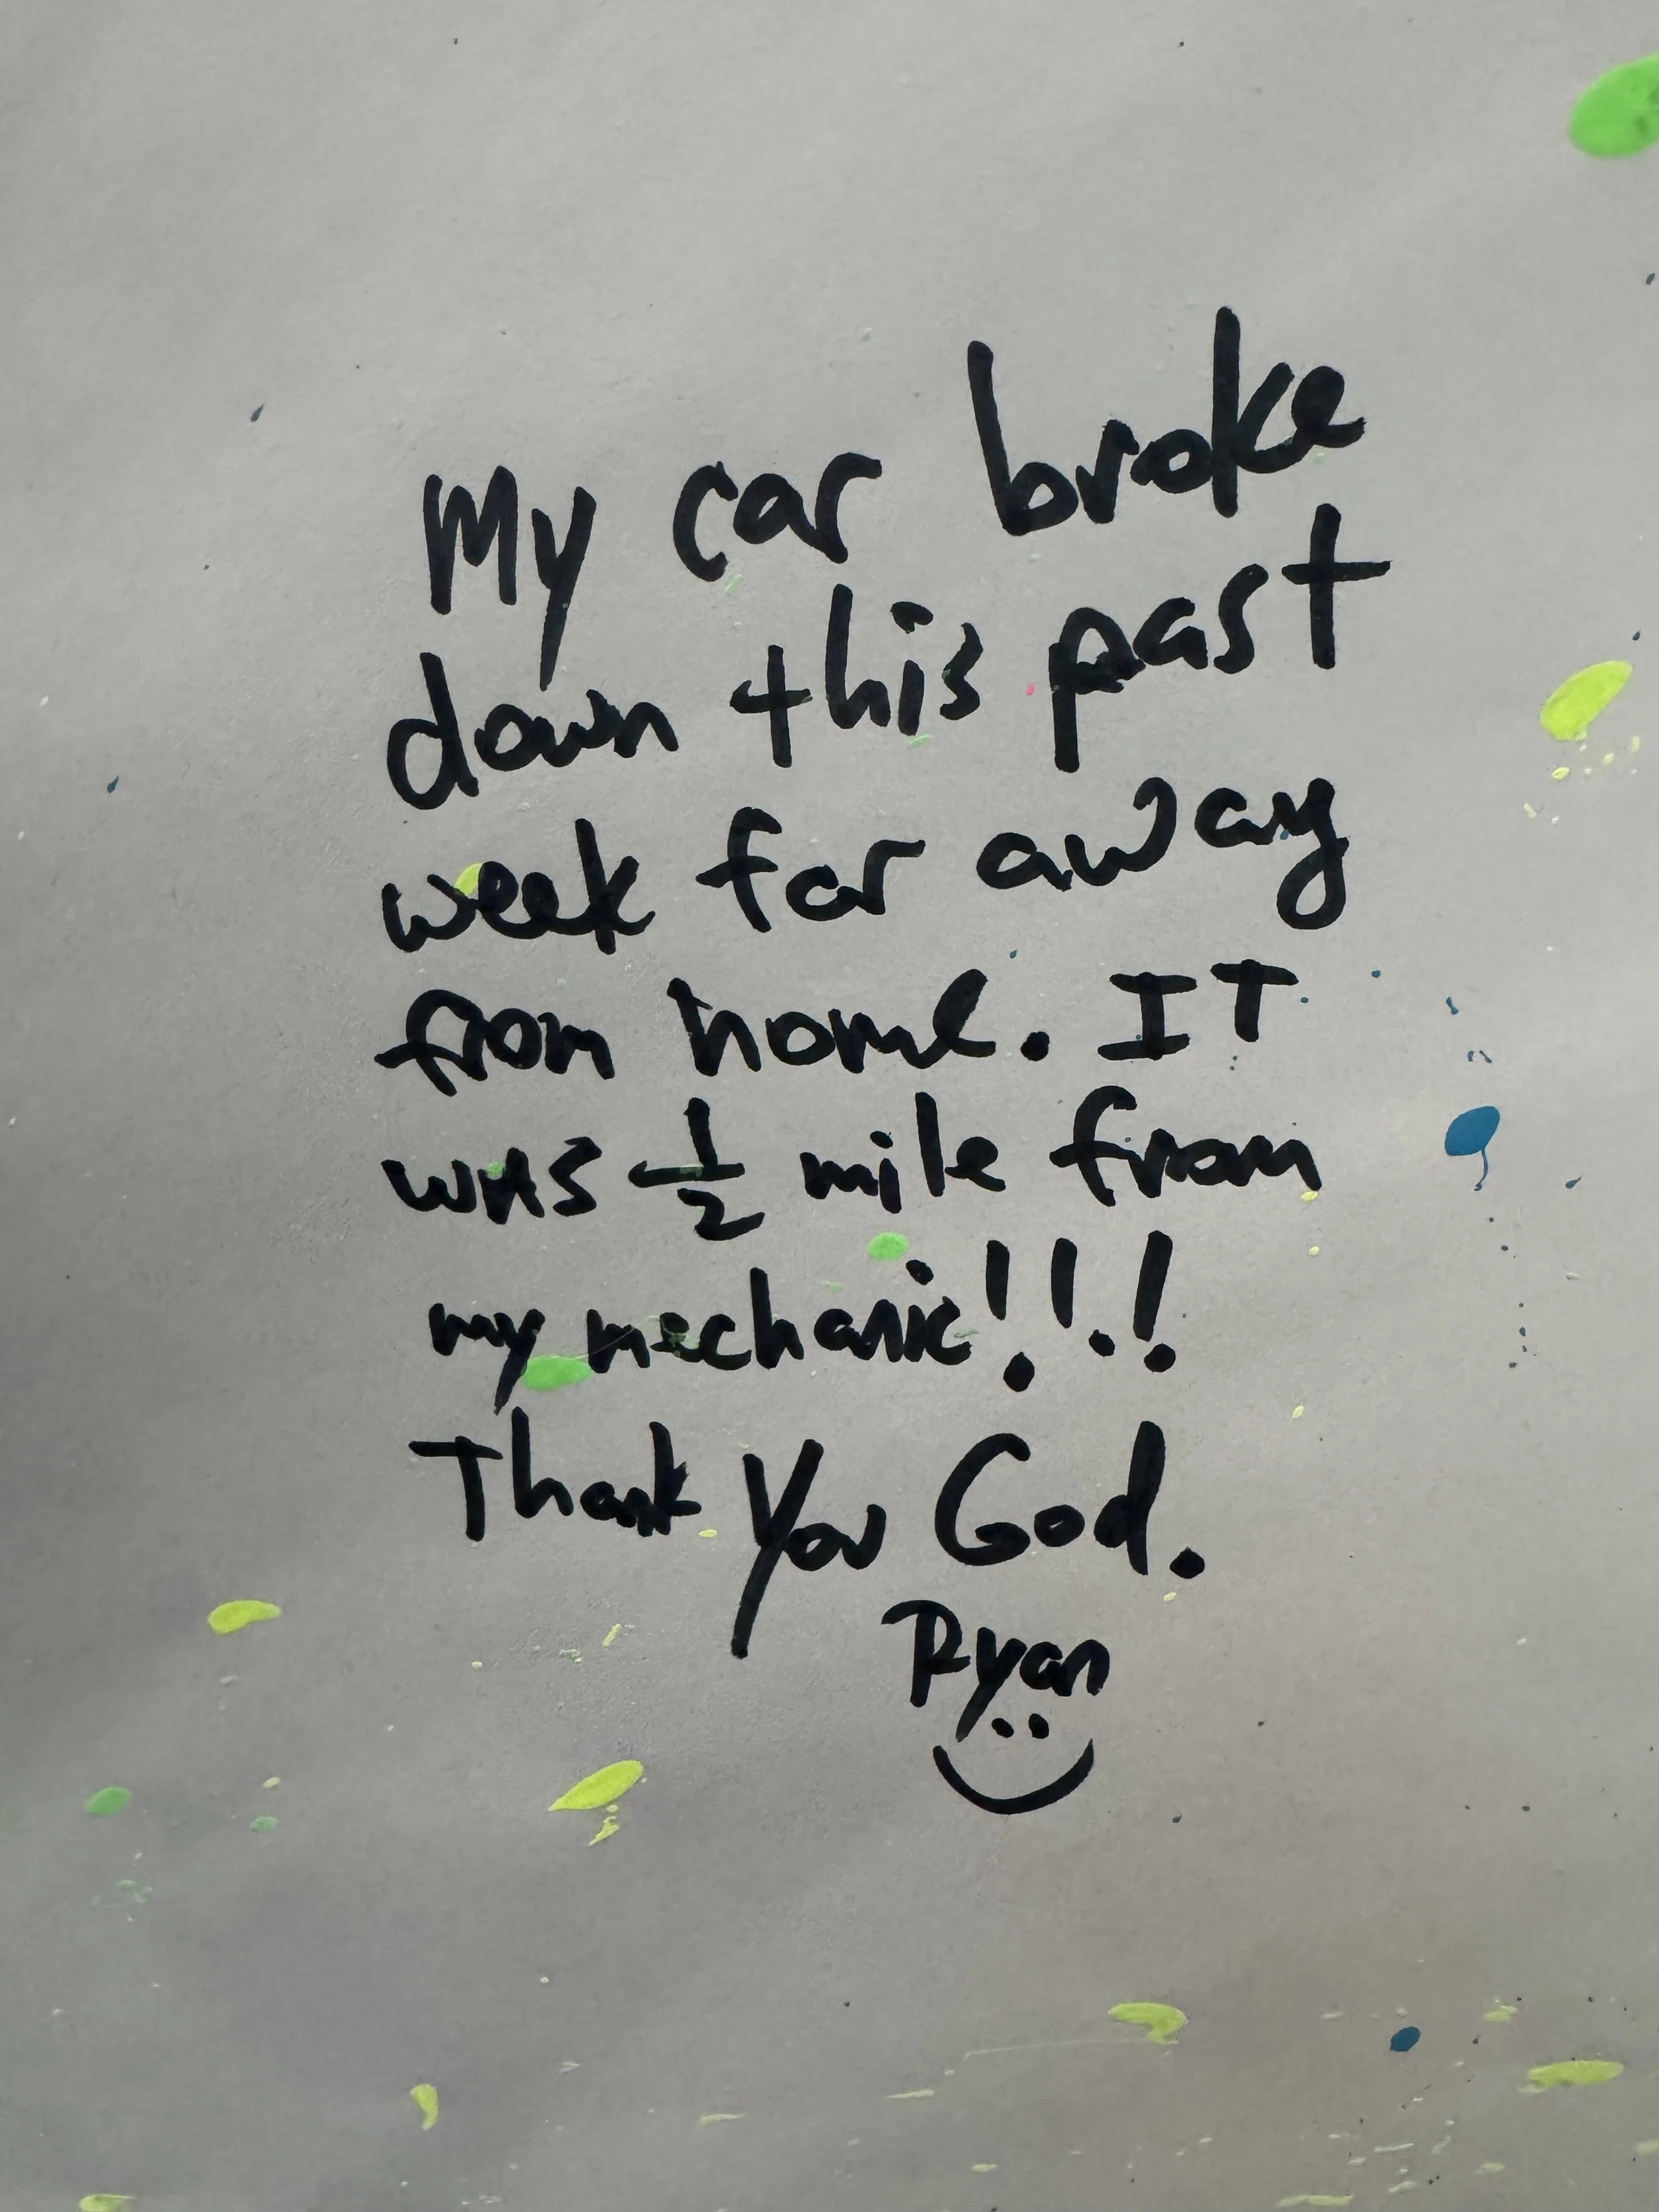 My car broke
down this past
week far away
from home. IT
was 1/2 mile from
my mechanic!!!
Thank You God.
Ryan